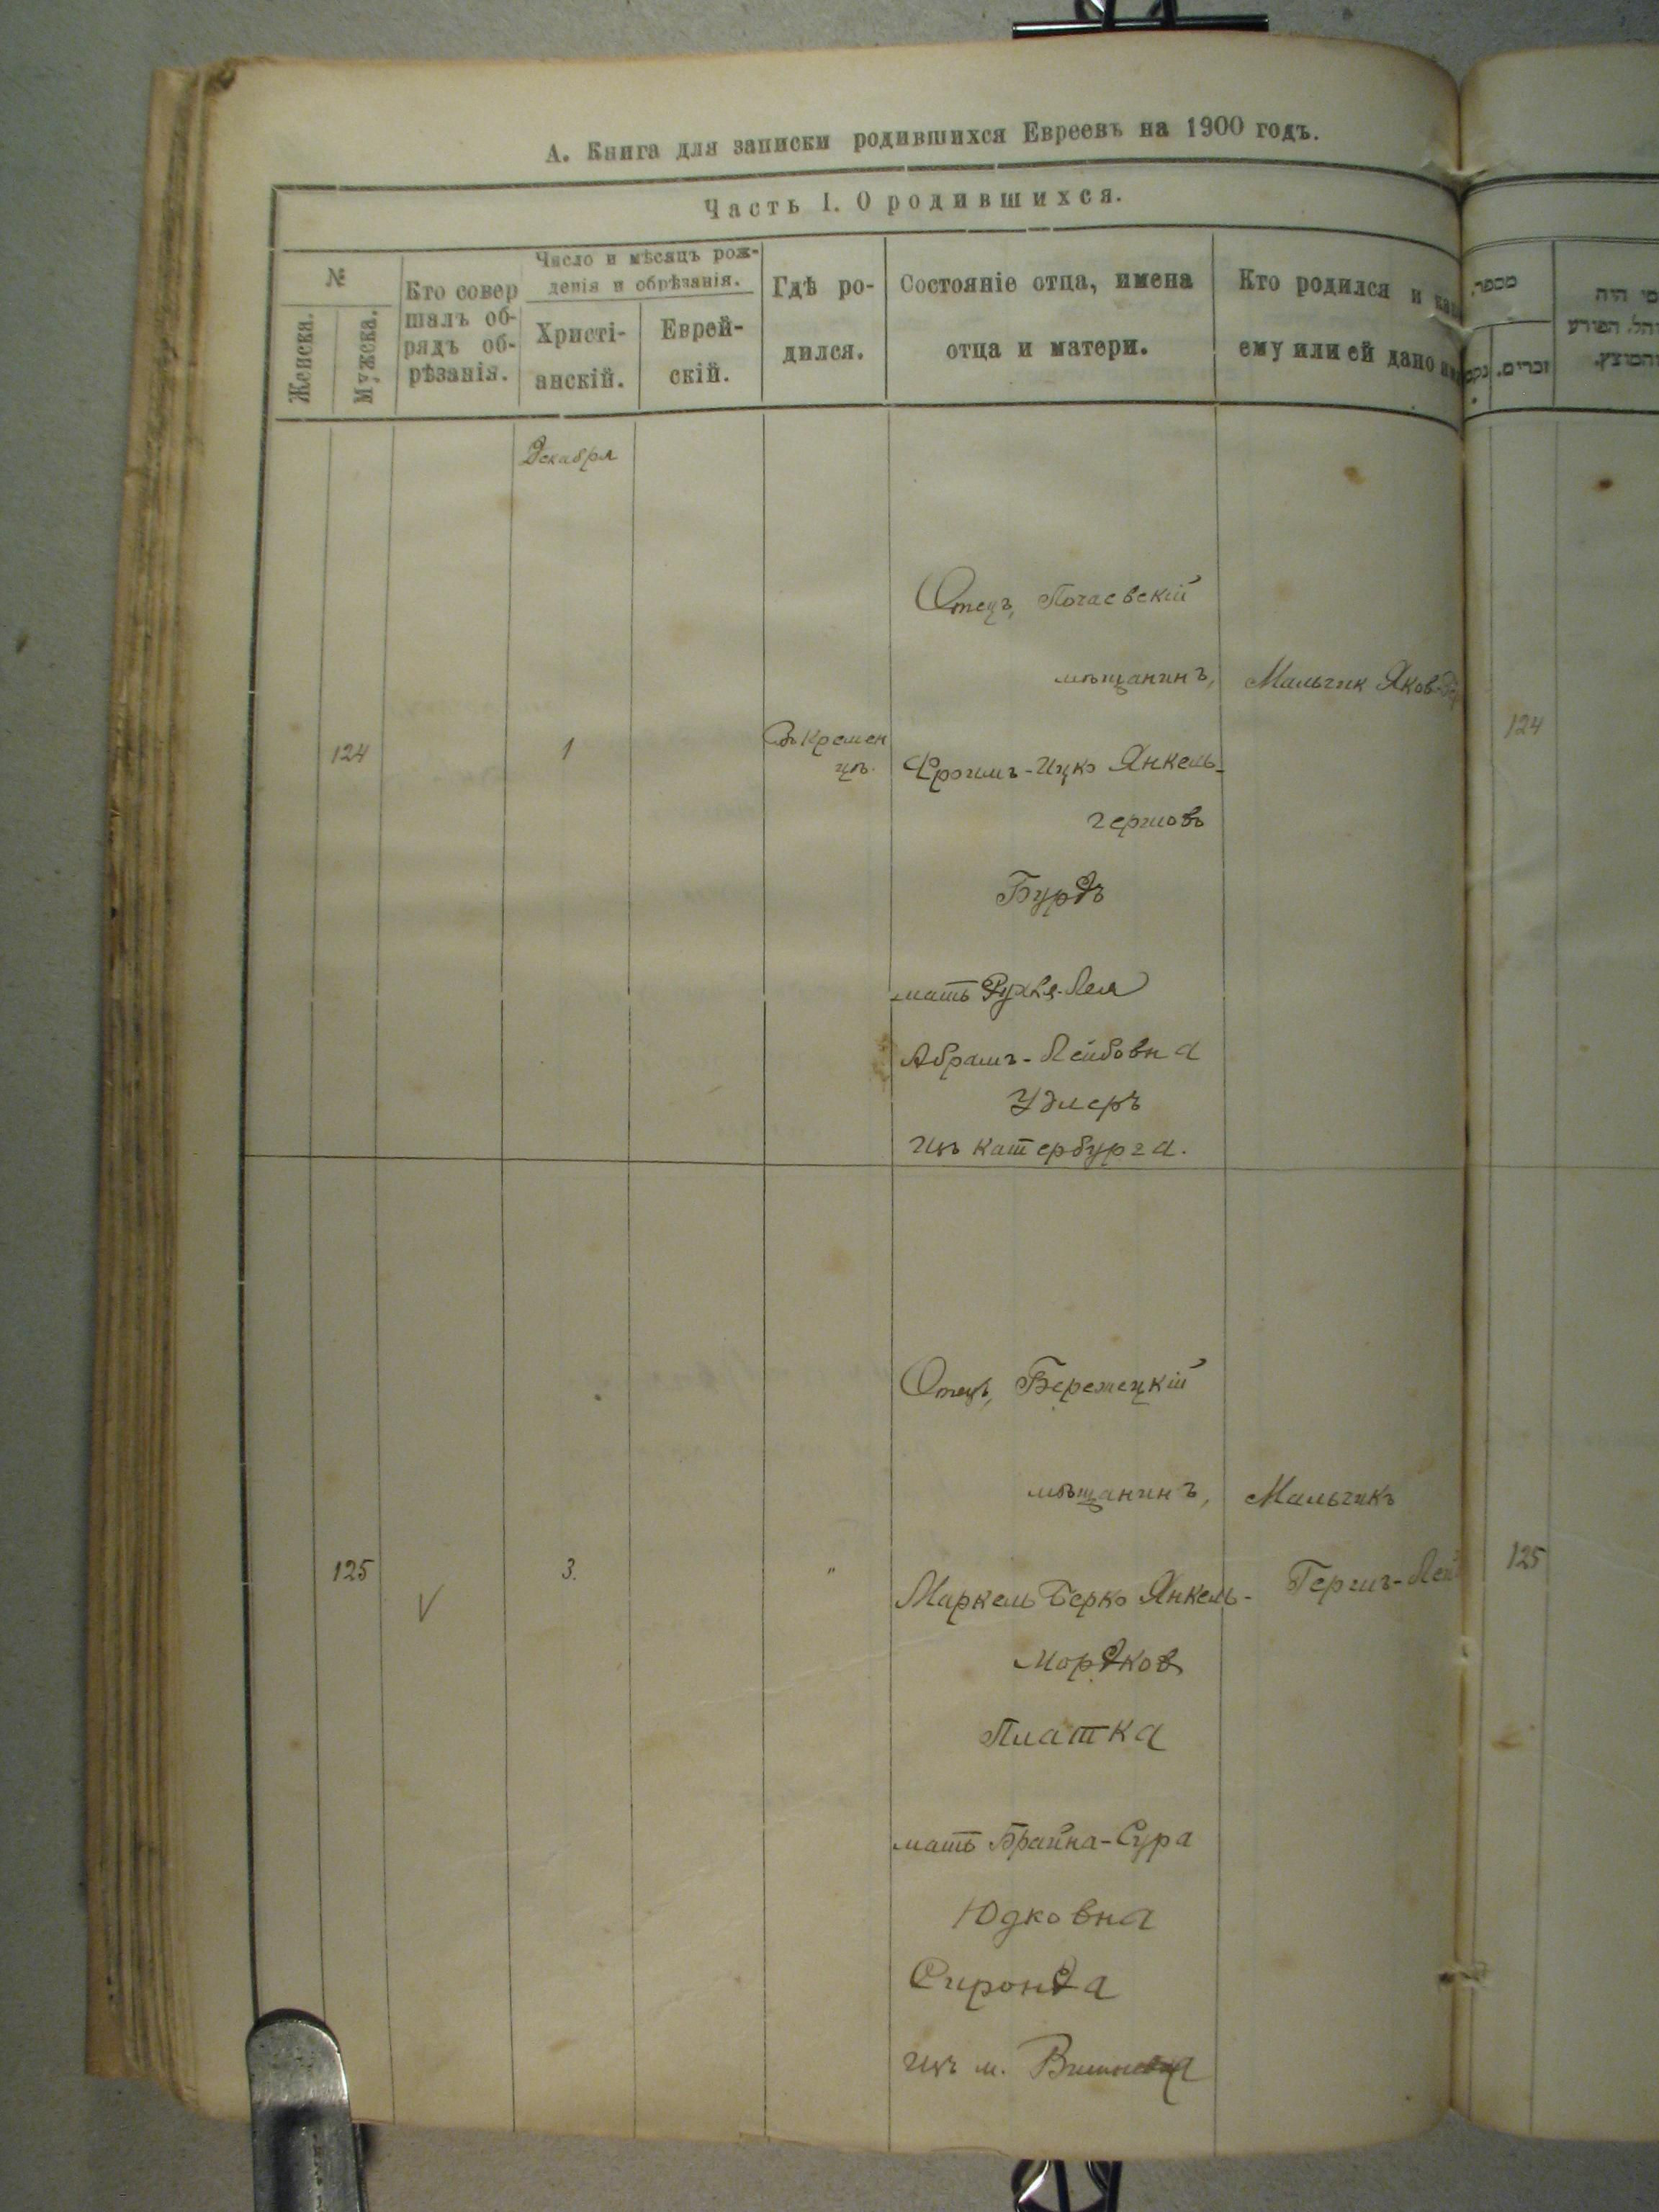 А. Книга для записки родившихся Евреевъ на 1900 годъ.
Часть I. О родившихся.
№
Женска.
Мужска.
Кто совер
шалъ об-
рядъ об-
рѣзанія.
Число и мѣсяцъ рож-
денія и обрѣзанія.
Христі-
анскій.
Еврей-
скій.
Гдѣ ро-
дился.
Состояніе отца, имена
отца и матери.
Кто родился и
ему или ей дано
מספר.
זכרים.
Декабря
124
1
Въ Кремен
цѣ.
Отецъ, Почаевскій
мѣщанинъ,
Фроимъ-Ицко Янкель-
гершовъ
Бурдъ
мать Рухля-Лея
Абрамъ-Лейбовна
Удлеръ
изъ Катербурга.
Мальчик Яков
124
125
3.
"
Отецъ, Бережецкій
мѣщанинъ,
Маркель Берко Янкель-
Мордков
Платка
мать Брайна-Сура
Юдковна
Сиронда
изъ м. Вишневца
Мальчикъ
Гершъ-
125